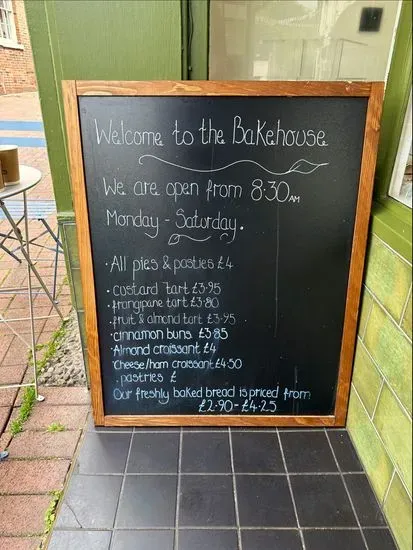 Welcome to the Bakehouse
We are open from 8:30AM
Monday - Saturday.
· All pies & pasties £4
· custard tart £3.95
· frangipane tart £3.80
· fruit & almond tart £3.95
· cinnamon buns £3.85
· Almond croissant £4
· Cheese/ham croissant £4.50
· pastries £
Our freshly baked bread is priced from
£2.90 - £4.25